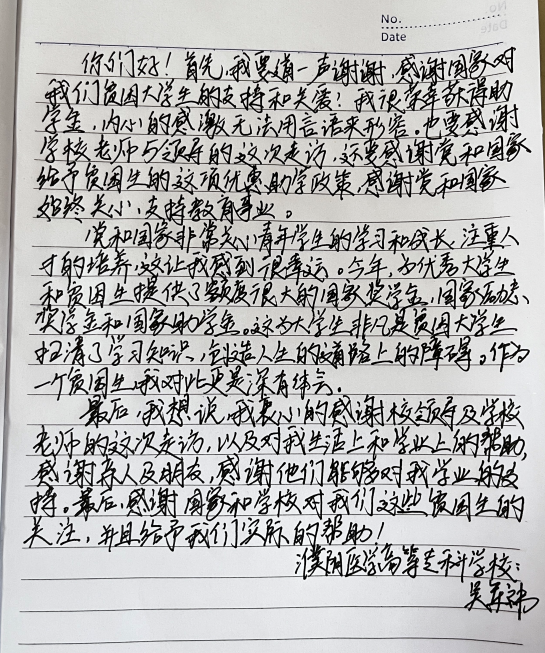 No.
Date
你们好！首先，我要道一声谢谢，感谢国家对
我们贫困大学生的支持和关爱！我很荣幸获得助
学金，内心的感激无法用言语来形容。也要感谢
学校老师与领导的这次走访，还要感谢党和国家
给予贫困生的这项优惠助学政策，感谢党和国家
始终关心，支持教育事业。
党和国家非常关心青年学生的学习和成长，注重人
才的培养，这让我感到很幸运。今年，为优秀大学生
和贫困生提供了额度很大的国家奖学金，国家励志
奖学金和国家助学金。这为大学生非凡是贫困大学生
扫清了学习知识，创造人生的道路上的障碍。作为
一个贫困生，我对此更是深有体会。
最后，我想说，我衷心的感谢校领导及学校
老师的这次走访，以及对我生活上和学业上的帮助，
感谢亲人及朋友，感谢他们能够对我学业的支
持。最后，感谢国家和学校对我们这些贫困生的
关注，并且给予我们实际的帮助！
濮阳医学高等专科学校：
吴